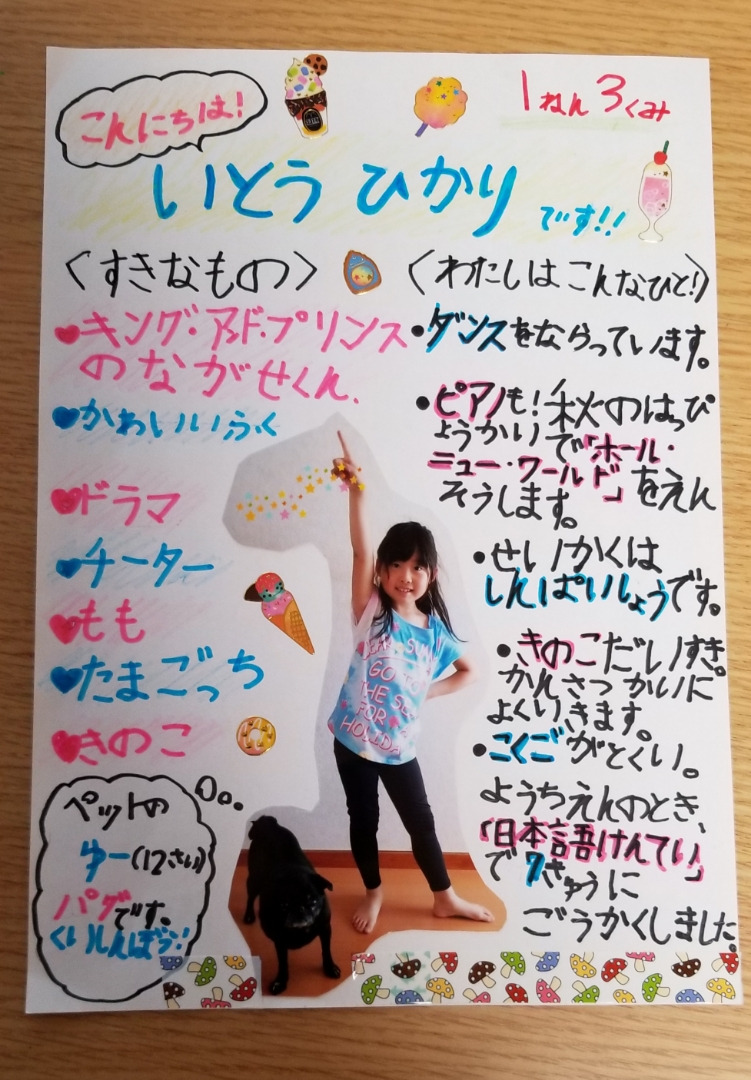 こんにちは!
1ねん3くみ
いとう ひかり です!!
〈すきなもの〉
♥キング・アンド・プリンス
のながせくん.
♥かわいいふく
♥ドラマ
♥チーター
♥もも
♥たまごっち
♥きのこ
ペットの
ゆー(12さい)
パグです。
くいしんぼう!
〈わたしはこんなひと!〉
•ダンスをならっています。
•ピアノも!秋のはっぴ
ょうかいで「ホール・
ニュー・ワールド」をえん
そうします。
•せいかくは
しんぱいしょうです。
•きのこだいすき。
かんさつかいに
よくいきます。
•こくごがとくい。
ようちえんのとき、
「日本語けんてい」
で7きゅうに
ごうかくしました。
GO TO
THE SEA
FOR
HOLIDA